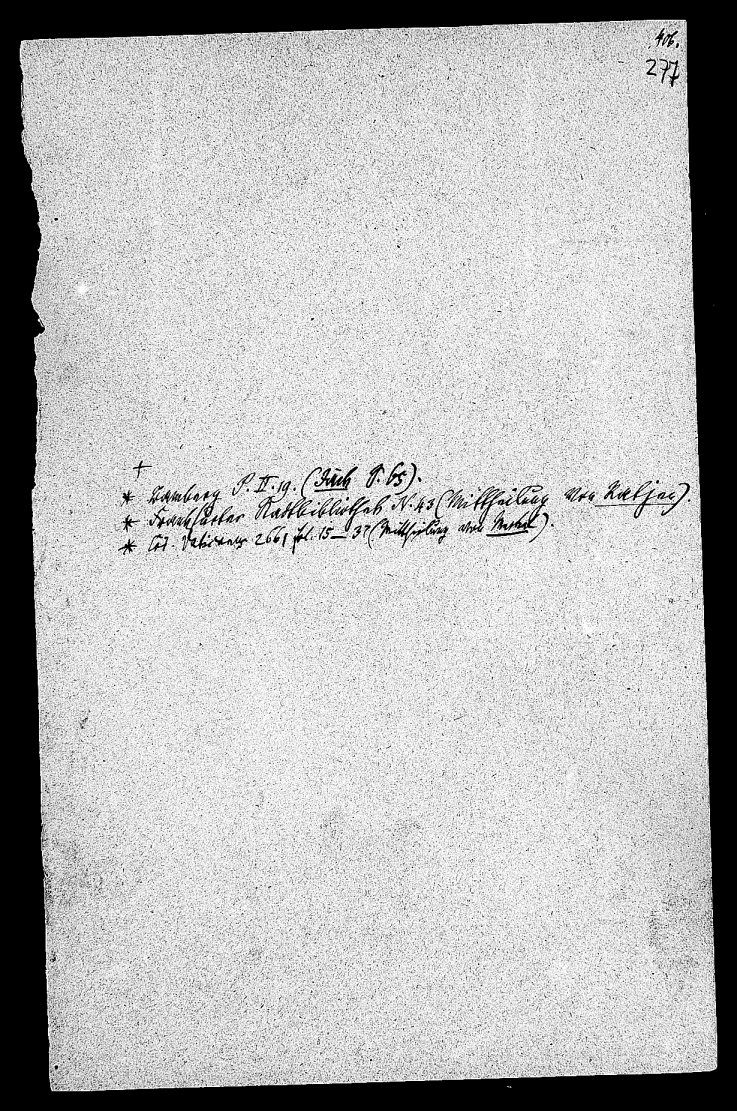 406.
277
+
* Bamberg P. II. 19. (Jäck S. 65).
* Frankfurter Stadtbibliothek N. 43 (Mittheilung von Ratjen).
* Cod. Vaticanus 2661 fol. 15 — 37 (Mittheilung von Merkel).